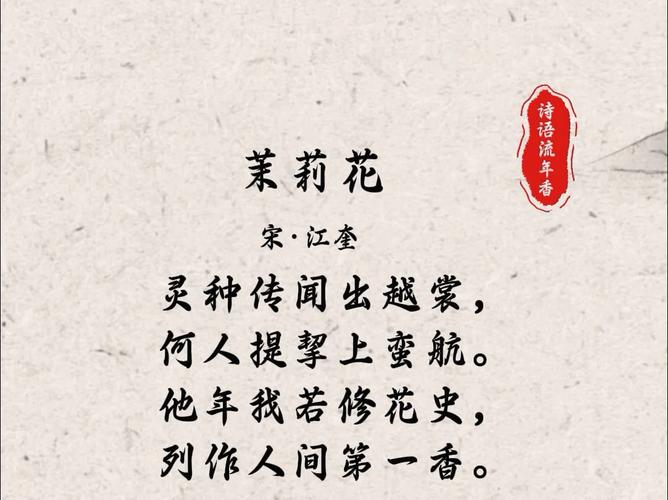 茉莉花
宋·江奎
灵种传闻出越裳，
何人提挈上蛮航。
他年我若修花史，
列作人间第一香。
诗语流年香